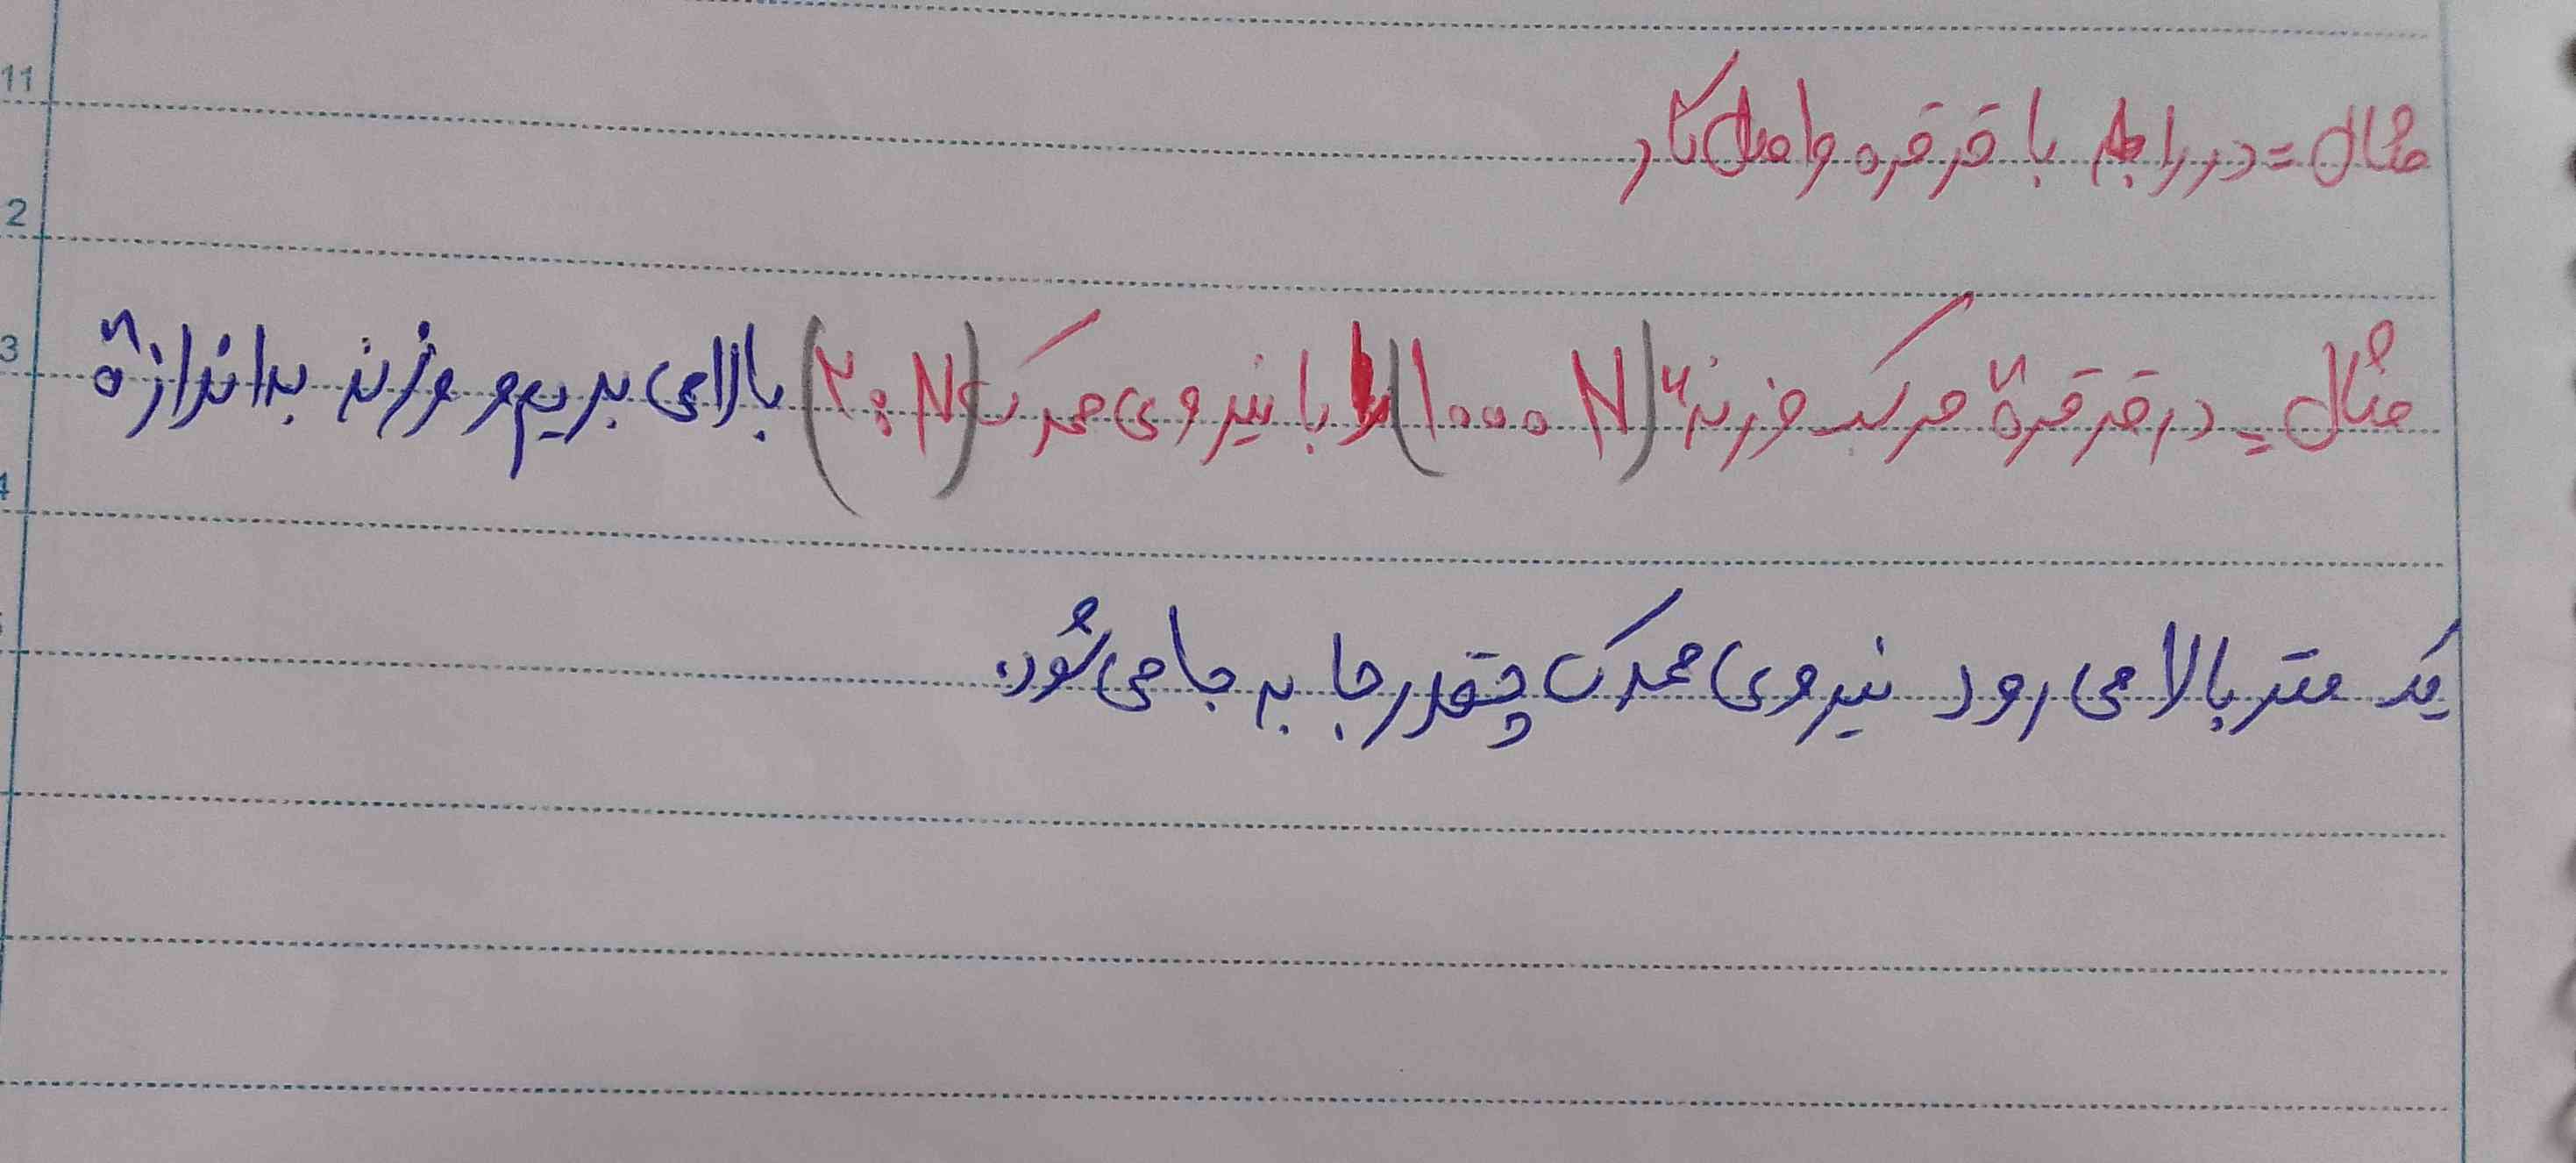 مثال = در رابطه با قرقره و اصل کار
مثال = در قرقرهٔ مرکب وزنهٔ (۱۰۰۰ N) را با نیروی محرک (۲۰ N) بالا می بریم و وزنه به اندازهٔ
یک متر بالا می رود نیروی محرک چقدر جا به جا می شود.
11
2
3
4